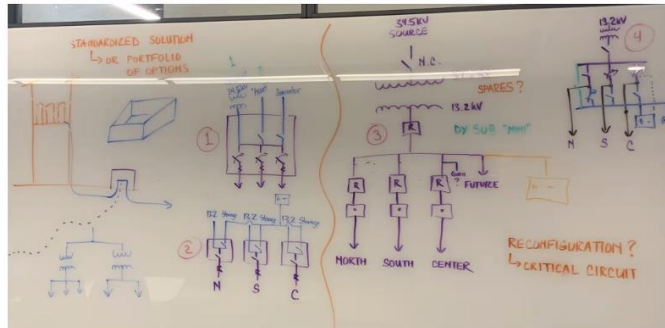 STANDARDIZED SOLUTION
↳ OR PORTFOLIO
OF OPTIONS
1
①
13.2 Strong 13.2 Strong 13.2 Strong
②
N S C
34.5kV
SOURCE
N.C.
SPARES?
13.2kV
③
R
R R R
FUTURE
NORTH SOUTH CENTER
RECONFIGURATION?
↳ CRITICAL CIRCUIT
13.2kV
④
N S C